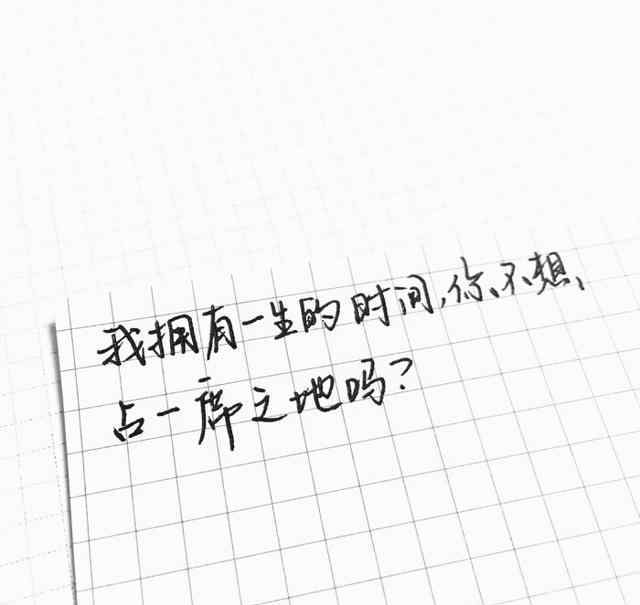 我拥有一生的时间,你不想、
占一席之地吗?